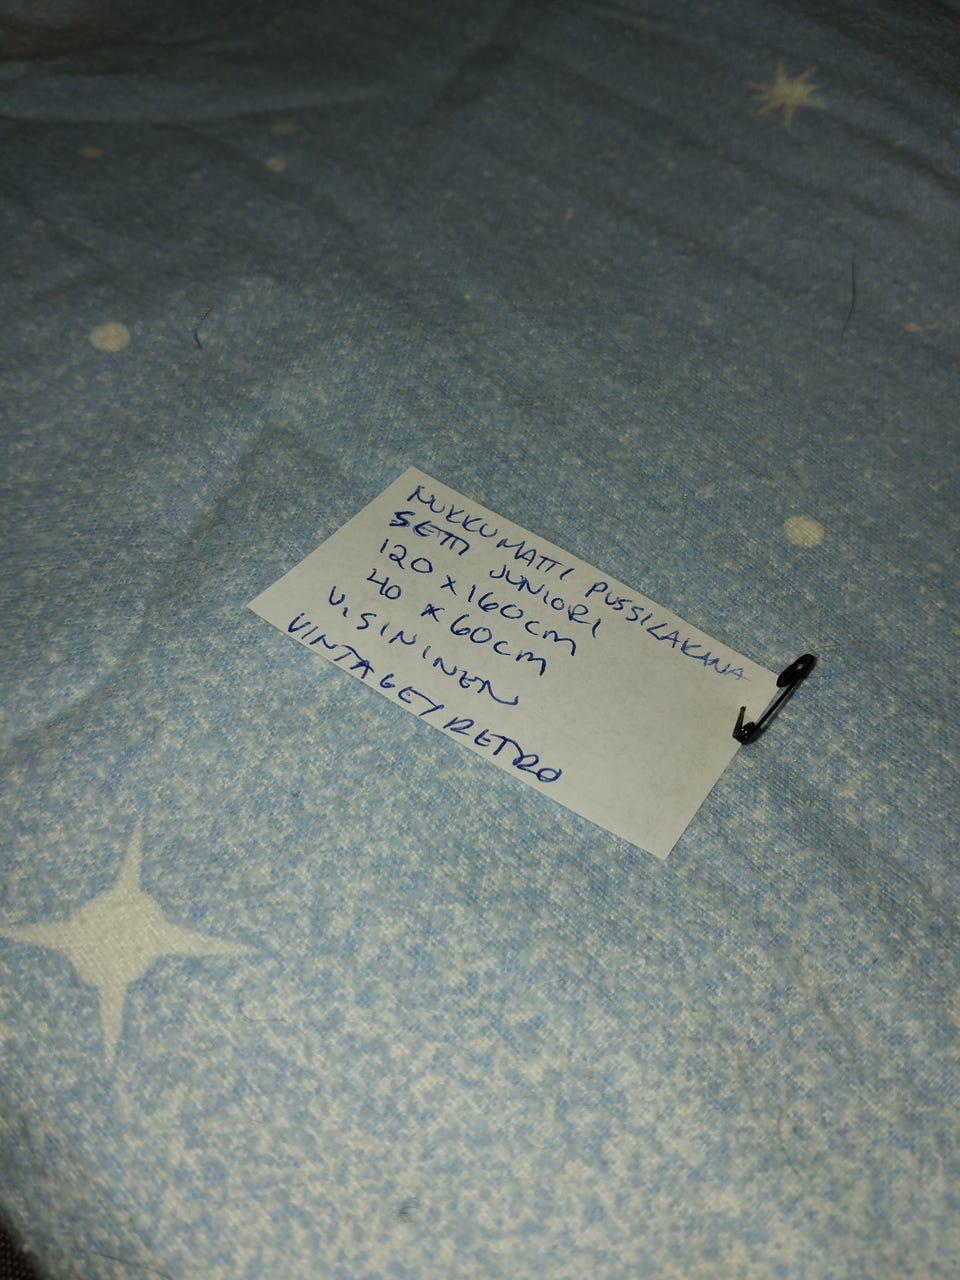 NUKKUMATTI PUSSILAKANA
SETTI JUNIORI
120 x 160 cm
40 x 60 cm
V. SININEN
VINTAGE / RETRO